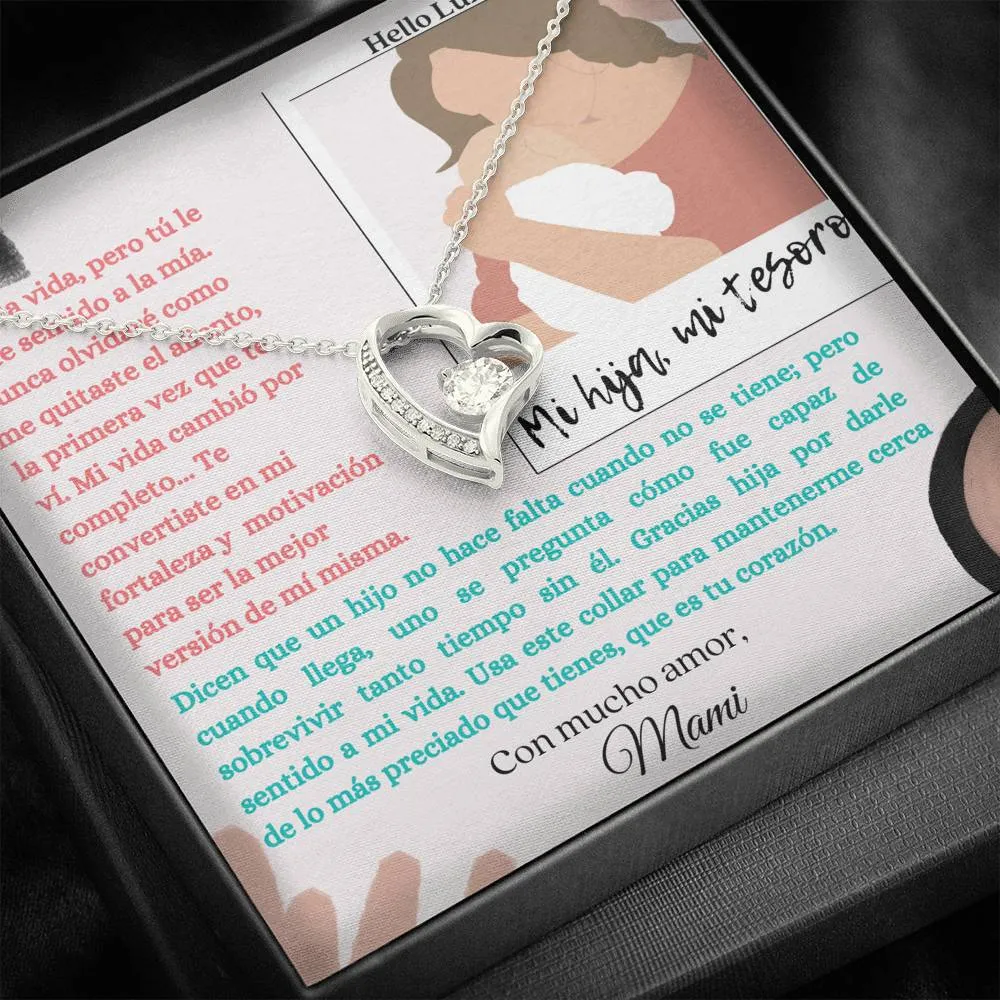 Hello
vida, pero tú le
sentido a la mía.
olvidaré como
me quitaste el aliento,
la primera vez que te
ví. Mi vida cambió por
completo... Te
convertiste en mi
fortaleza y motivación
para ser la mejor
versión de mí misma.
Mi hija, mi tesoro
Dicen que un hijo no hace falta cuando no se tiene; pero
cuando llega, uno se pregunta cómo fue capaz de
sobrevivir tanto tiempo sin él. Gracias hija por darle
sentido a mi vida. Usa este collar para mantenerme cerca
de lo más preciado que tienes, que es tu corazón.
Con mucho amor,
Mami